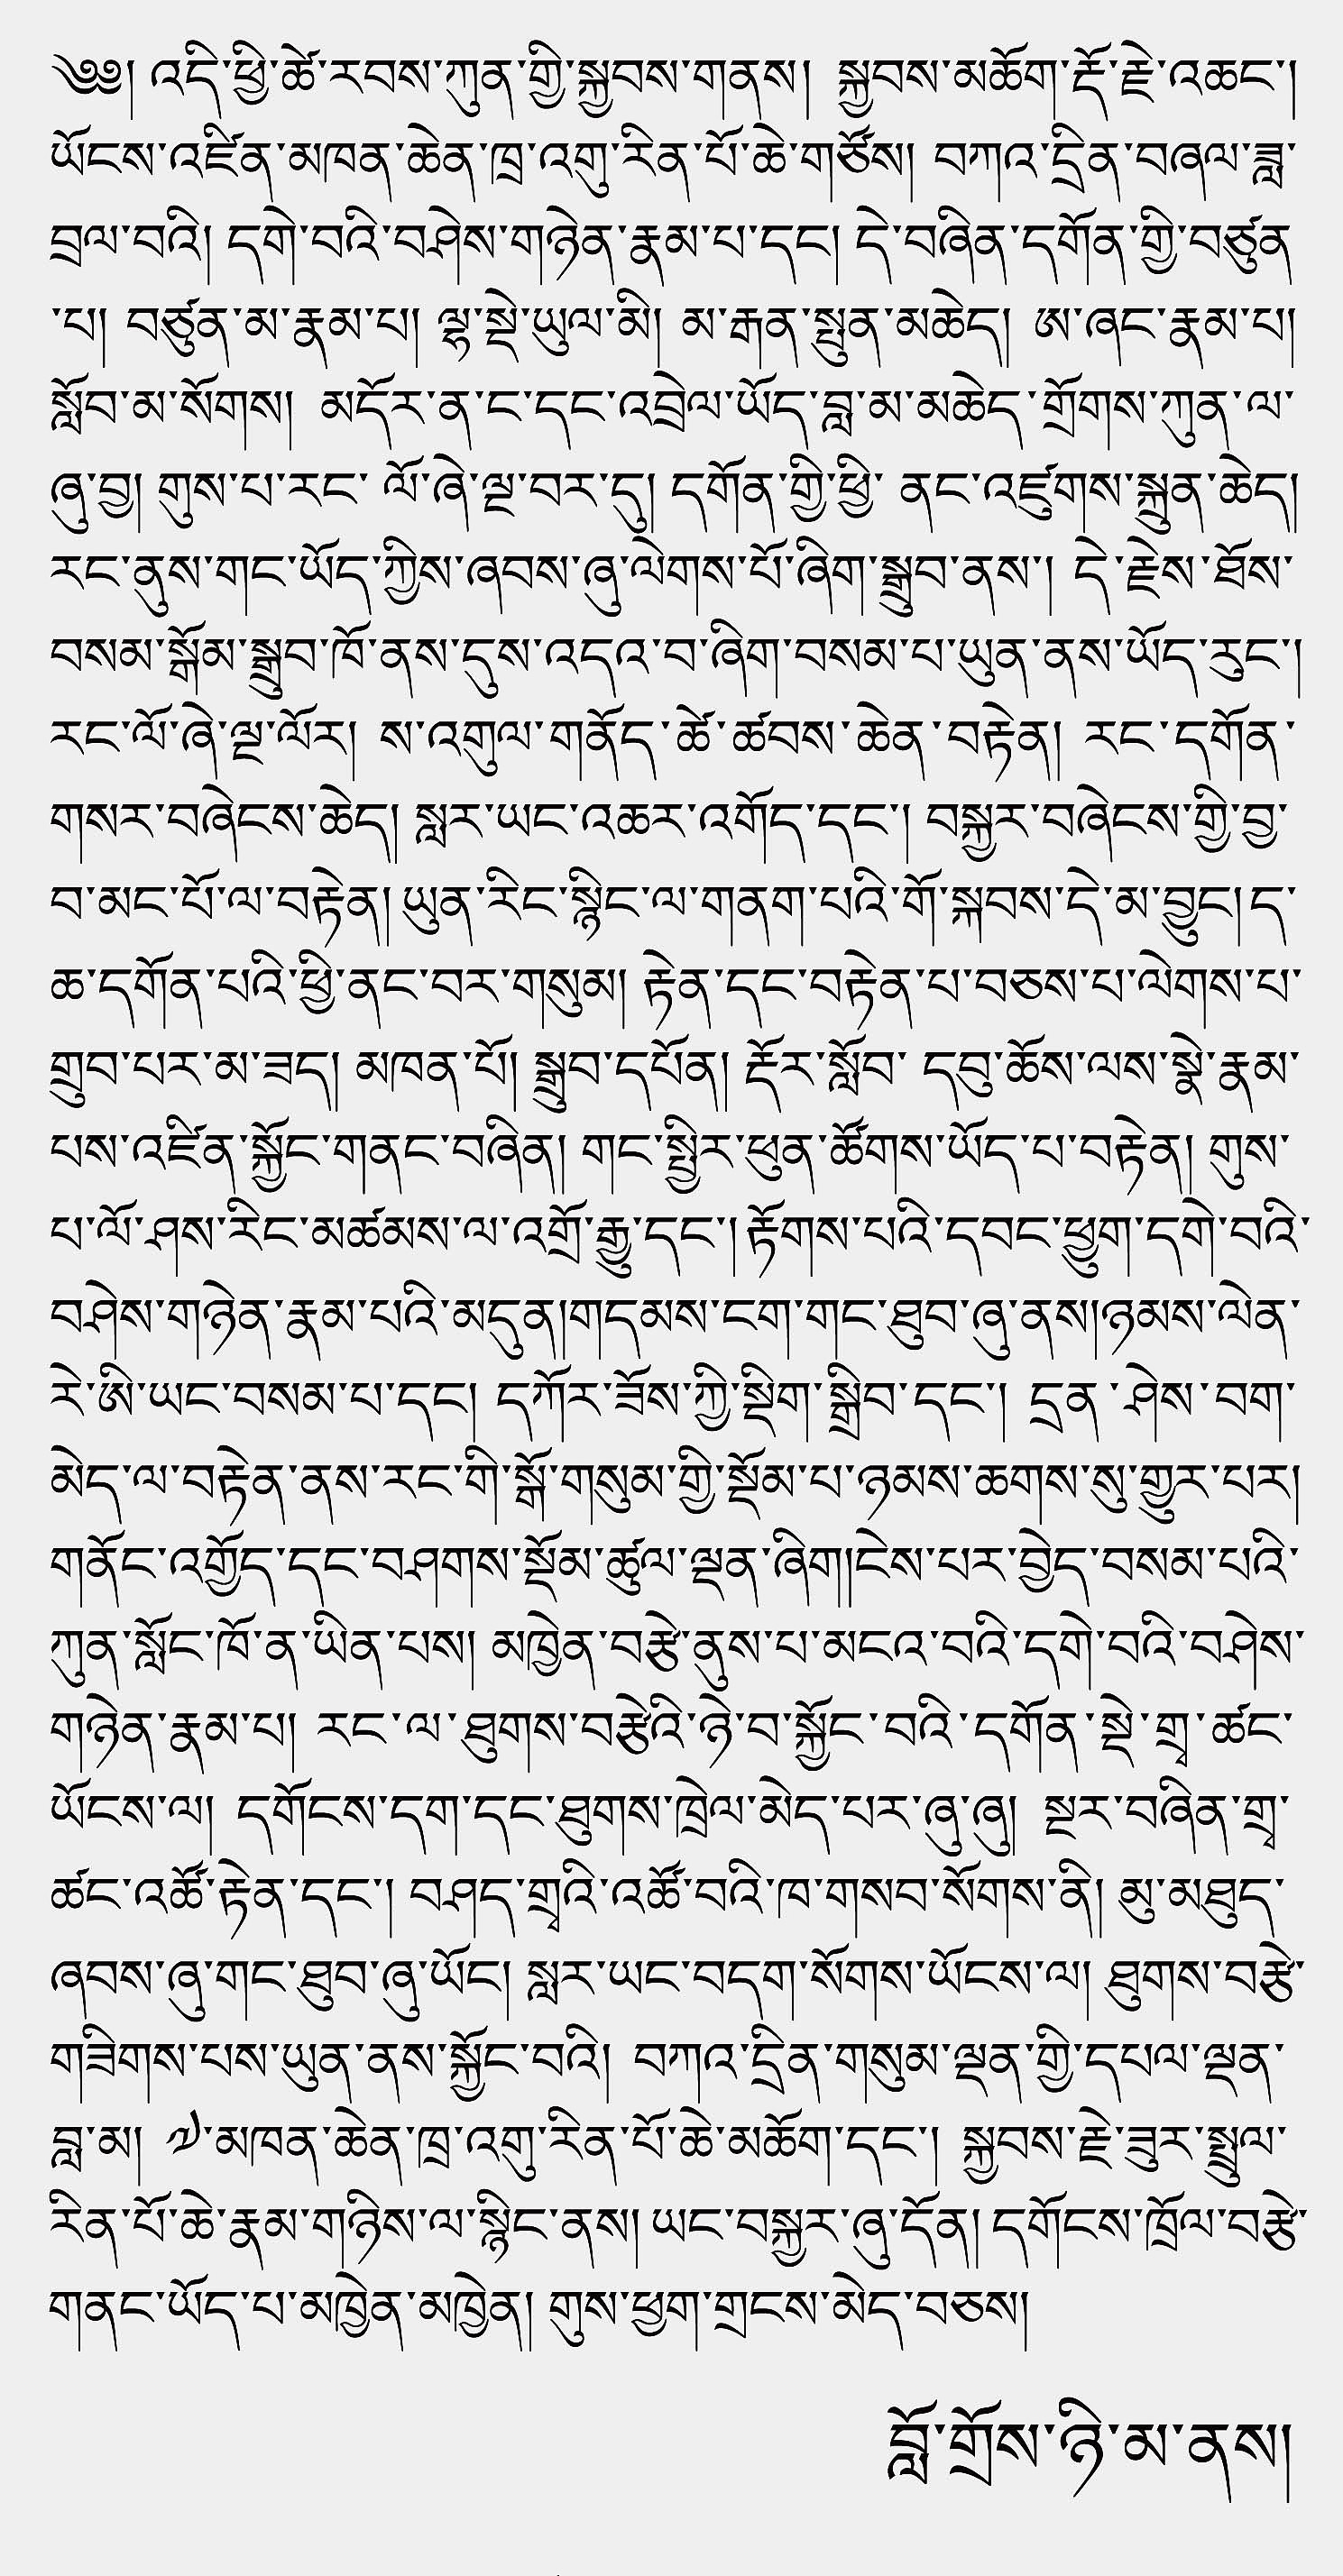 ༄༅། འདི་ཕྱི་ཚེ་རབས་ཀུན་གྱི་སྐྱབས་གནས། སྐྱབས་མཆོག་རྡོ་རྗེ་འཆང་།
ཡོངས་འཛིན་མཁན་ཆེན་ཁྲ་འགུ་རིན་པོ་ཆེ་གཙོས། བཀའ་དྲིན་བཞལ་ཟླ་
བྲལ་བའི། དགེ་བའི་བཤེས་གཉེན་རྣམ་པ་དང། དེ་བཞིན་དགོན་གྱི་བཙུན
་པ། བཙུན་མ་རྣམ་པ། ལྷ་སྡེ་ཡུལ་མི། མ་རྒན་སྤུན་མཆེད། ཨ་ཞང་རྣམ་པ།
སློབ་མ་སོགས། མདོར་ན་ང་དང་འབྲེལ་ཡོད་བླ་མ་མཆེད་གྲོགས་ཀུན་ལ་
ཞུ་བྱ། གུས་པ་རང་ ལོ་ཞེ་ལྔ་བར་དུ། དགོན་གྱི་ཕྱི་ ནང་འཛུགས་སྐྲུན་ཆེད།
རང་ནུས་གང་ཡོད་ཀྱིས་ཞབས་ཞུ་ལེགས་པོ་ཞིག་སྒྲུབ་ནས་། དེ་རྗེས་ཐོས་
བསམ་སྒོམ་སྒྲུབ་ཁོ་ནས་དུས་འདའ་བ་ཞིག་བསམ་པ་ཡུན་ནས་ཡོད་རུང་།
རང་ལོ་ཞེ་ལྔ་ལོར། ས་འགུལ་གནོད་ཚེ་ཚབས་ཆེན་བརྟེན། རང་དགོན་
གསར་བཞེངས་ཆེད། སླར་ཡང་འཆར་འགོད་དང་། བསྐྱར་བཞེངས་གྱི་བྱ་
བ་མང་པོ་ལ་བརྟེན། ཡུན་རིང་སྙིང་ལ་གནག་པའི་གོ་སྐབས་དེ་མ་བྱུང། ད་
ཆ་དགོན་པའི་ཕྱི་ནང་བར་གསུམ། རྟེན་དང་བརྟེན་པ་བཅས་པ་ལེགས་པ་
གྲུབ་པར་མ་ཟད། མཁན་པོ། སྒྲུབ་དཔོན། རྡོར་སློབ་ དབུ་ཆོས་ལས་སྣེ་རྣམ་
པས་འཛིན་སྐྱོང་གནང་བཞིན། གང་སྤྱིར་ཕུན་ཚོགས་ཡོད་པ་བརྟེན། གུས་
པ་ལོ་ཤས་རིང་མཚམས་ལ་འགྲོ་རྒྱུ་དང་། རྟོགས་པའི་དབང་ཕྱུག་དགེ་བའི་
བཤེས་གཉེན་རྣམ་པའི་མདུན།གདམས་ངག་གང་ཐུབ་ཞུ་ནས།ཉམས་ལེན་
རེ་ཨི་ཡང་བསམ་པ་དང། དཀོར་ཟོས་ཀྱི་སྡིག་སྒྲིབ་དང་། དྲན་ཤེས་བག་
མེད་ལ་བརྟེན་ནས་རང་གི་སྒོ་གསུམ་གྱི་སྡོམ་པ་ཉམས་ཆགས་སུ་གྱུར་པར།
གནོང་འགྱོད་དང་བཤགས་སྡོམ་ཚུལ་ལྡན་ཞིག།ངེས་པར་བྱེད་བསམ་པའི་
ཀུན་སློང་ཁོ་ན་ཡིན་པས། མཁྱེན་བརྩེ་ནུས་པ་མངའ་བའི་དགེ་བའི་བཤེས་
གཉེན་རྣམ་པ། རང་ལ་ཐུགས་བརྩེའི་ཉེ་བ་སྐྱོང་བའི་དགོན་སྡེ་གྲྭ་ཚང་
ཡོངས་ལ། དགོངས་དག་དང་ཐུགས་ཁྲེལ་མེད་པར་ཞུ་ཞུ། སྔར་བཞིན་གྲྭ་
ཚང་འཚོ་རྟེན་དང་། བཤད་གྲྭའི་འཚོ་བའི་ཁ་གསབ་སོགས་ནི། མུ་མཐུད་
ཞབས་ཞུ་གང་ཐུབ་ཞུ་ཡོང། སླར་ཡང་བདག་སོགས་ཡོངས་ལ། ཐུགས་བརྩེ་
གཟིགས་པས་ཡུན་ནས་སྐྱོང་བའི། བཀའ་དྲིན་གསུམ་ལྡན་གྱི་དཔལ་ལྡན་
བླ་མ། ༧་མཁན་ཆེན་ཁྲ་འགུ་རིན་པོ་ཆེ་མཆོག་དང་། སྐྱབས་རྗེ་ཟུར་སྤྲུལ་
རིན་པོ་ཆེ་རྣམ་གཉིས་ལ་སྙིང་ནས། ཡང་བསྐྱར་ཞུ་དོན། དགོངས་ཁྲོལ་བརྩེ་
གནང་ཡོད་པ་མཁྱེན་མཁྱེན། གུས་ཕྱག་གྲངས་མེད་བཅས།
བློ་གྲོས་ཉི་མ་ནས།